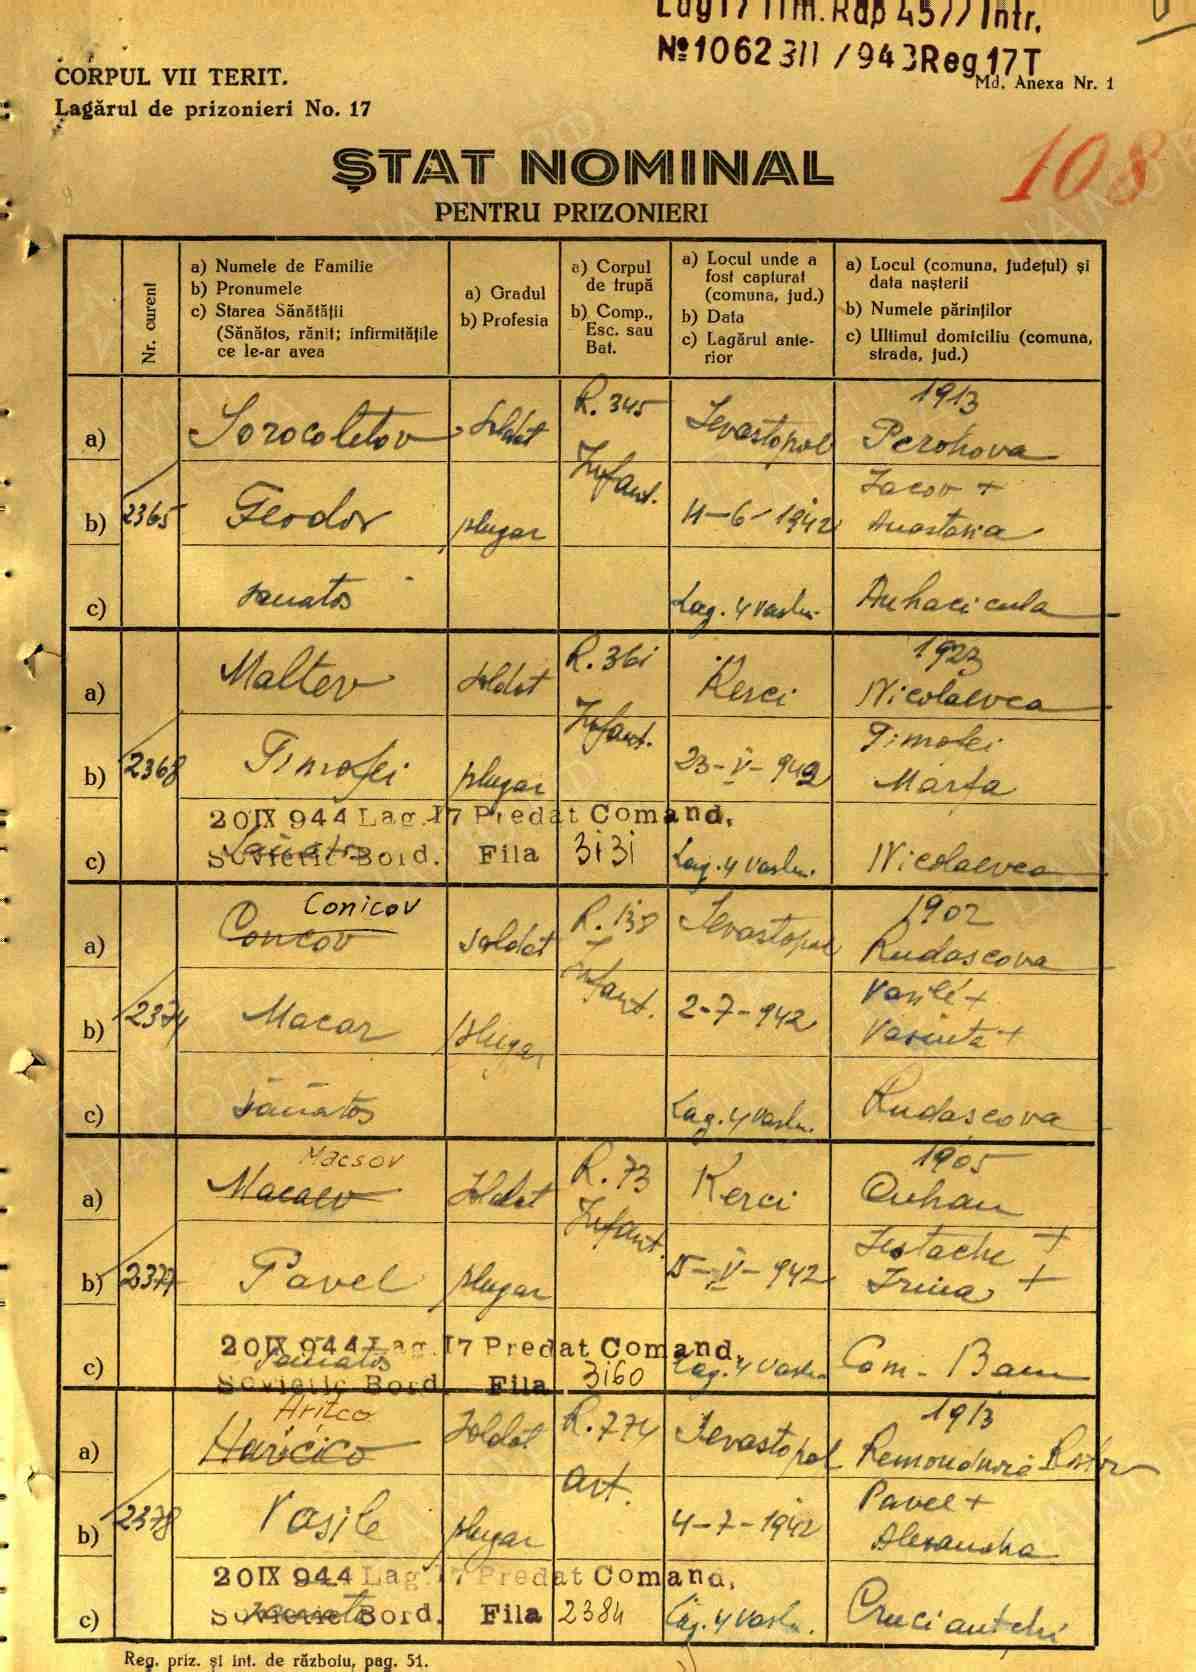 Lag 17 Tim. Rap 4577 Intr.
№ 1062311 /943 Reg 17 T
CORPUL VII TERIT.
Md. Anexa Nr. 1
Lagărul de prizonieri No. 17
108
ȘTAT NOMINAL
PENTRU PRIZONIERI
Nr. curent
a) Numele de Familie
b) Pronumele
c) Starea Sănătății
(Sănătos, rănit; infirmitățile
ce le-ar avea
a) Gradul
b) Profesia
a) Corpul
de trupă
b) Comp.,
Esc. sau
Bat.
a) Locul unde a
fost capturat
(comuna, jud.)
b) Data
c) Lagărul ante-
rior
a) Locul (comuna, județul) și
data nașterii
b) Numele părinților
c) Ultimul domiciliu (comuna,
strada, jud.)
a) Sorocoletov soldat R. 345 Sevastopol 1913
Perohova
b) 2365 Feodor plugar Infant. 4-6-1942 Iacov +
Anastasia
c) sanatos Lag. 4 Vaslu.
a) Maltev soldat R. 361 Kerci 1923
Nicolaevca
b) 2368 Timofei plugar Infant. 23-V-942 Timofei
Marfa
20 IX 944 Lag. 17 Predat Comand.
c) Sanatos Lag. 4 Vaslu. Nicolaevca
Sovietic Bord. Fila 3131
Conicov
a) Concov soldat R. 138 Sevastopol 1902
Rudascova
b) 2374 Macar plugar Infant. 2-7-942 Vasile +
c) Sănătos Lag. 4 Vaslu. Rudascova
Macsov
a) Macaev soldat R. 73 Kerci 1905
b) 2377 Pavel plugar Infant. 15-V-942 Iestache +
Irina +
20 IX 944 Lag. 17 Predat Comand.
c) Sanatos Lag. 4 Vaslu. Com.
Sovietic Bord. Fila 3160
Hritco
a) Soldat R. 774 Sevastopol 1913
b) 2378 Vasile plugar Art. 4-7-1942 Pavel +
Alexandra
20 IX 944 Lag. 17 Predat Comand.
c) Sanatos Lag. 4 Vaslu.
Sovietic Bord. Fila 2384
Reg. priz. și int. de războiu, pag. 51.